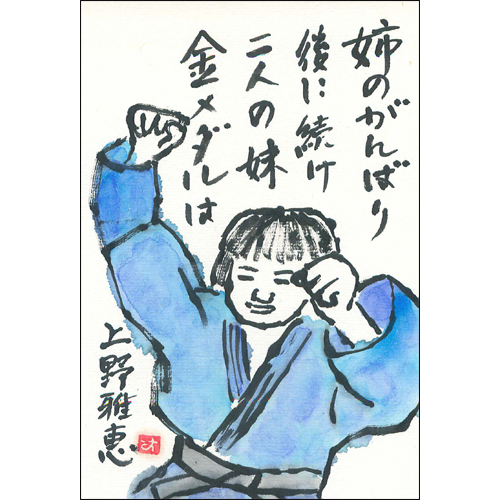 姉のがんばり
後に続け
二人の妹
金メダルは
上野雅恵